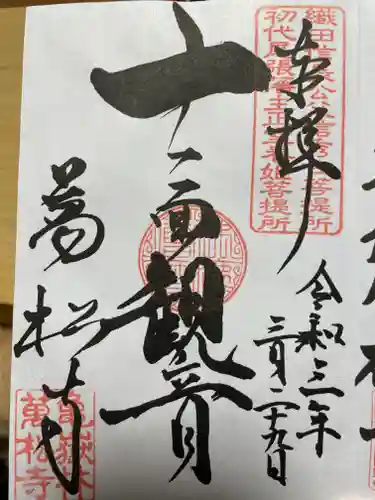 奉拝
織田信長公父信秀公菩提所
初代尾張藩主正室春姫菩提所
令和三年
三月二十九日
十一面
観音
萬松寺
亀嶽林
萬松寺